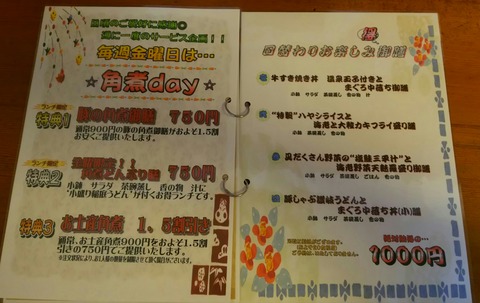 日頃のご愛好に感謝◎
週に一度のサービス企画!!
毎週金曜日は…
☆角煮day☆
ランチ限定
特典1
豚の角煮御膳 750円
通常900円の豚の角煮御膳がおよそ1.5割
お安くご提供いたします。
ランチ限定
特典2
750円
小鉢 サラダ 茶碗蒸し 香の物 汁に
"小盛り稲庭うどん"が付くお得ランチです。
特典3
お土産角煮 1、5割引き
通常、お土産角煮900円をおよそ1.5割
引きの750円でご提供いたします。
日替わりお楽しみ御膳
牛すき焼き丼 温泉玉子付きと
まぐろ中落ち御膳
小鉢 サラダ 茶碗蒸し 香の物 汁
"特製"ハヤシライスと
海老と大粒カキフライ盛り膳
小鉢 サラダ 茶碗蒸し 香の物
具だくさん野菜の
海老野菜天麩羅盛り御膳
小鉢 サラダ 茶碗蒸し ごはん 香の物
豚しゃぶ讃岐うどんと
まぐろ中落ち丼(小)膳
小鉢 サラダ 茶碗蒸し 香の物
1000円